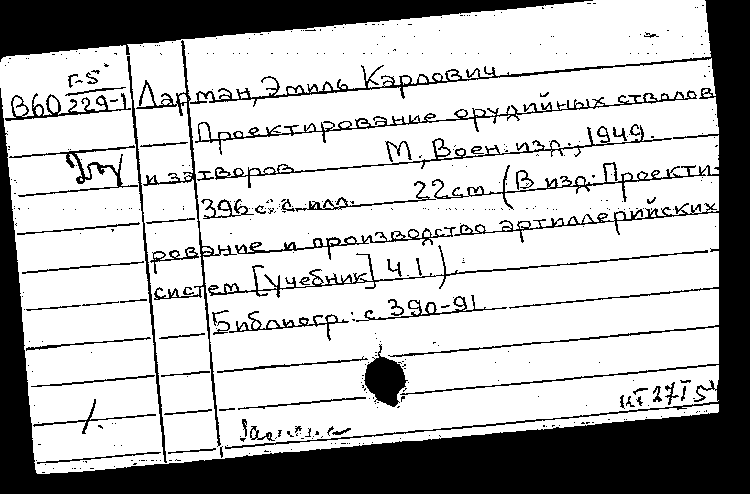 Г-5
В60 229-1 Ларман, Эмиль Карлович.
Проектирование орудийных стволов
и затворов М., Воен. изд., 1949.
396 с. с илл. 22 см. (В изд: Проекти-
рование и производство артиллерийских
систем [Учебник] Ч.I.)
Библиогр.: с. 390-91
27I